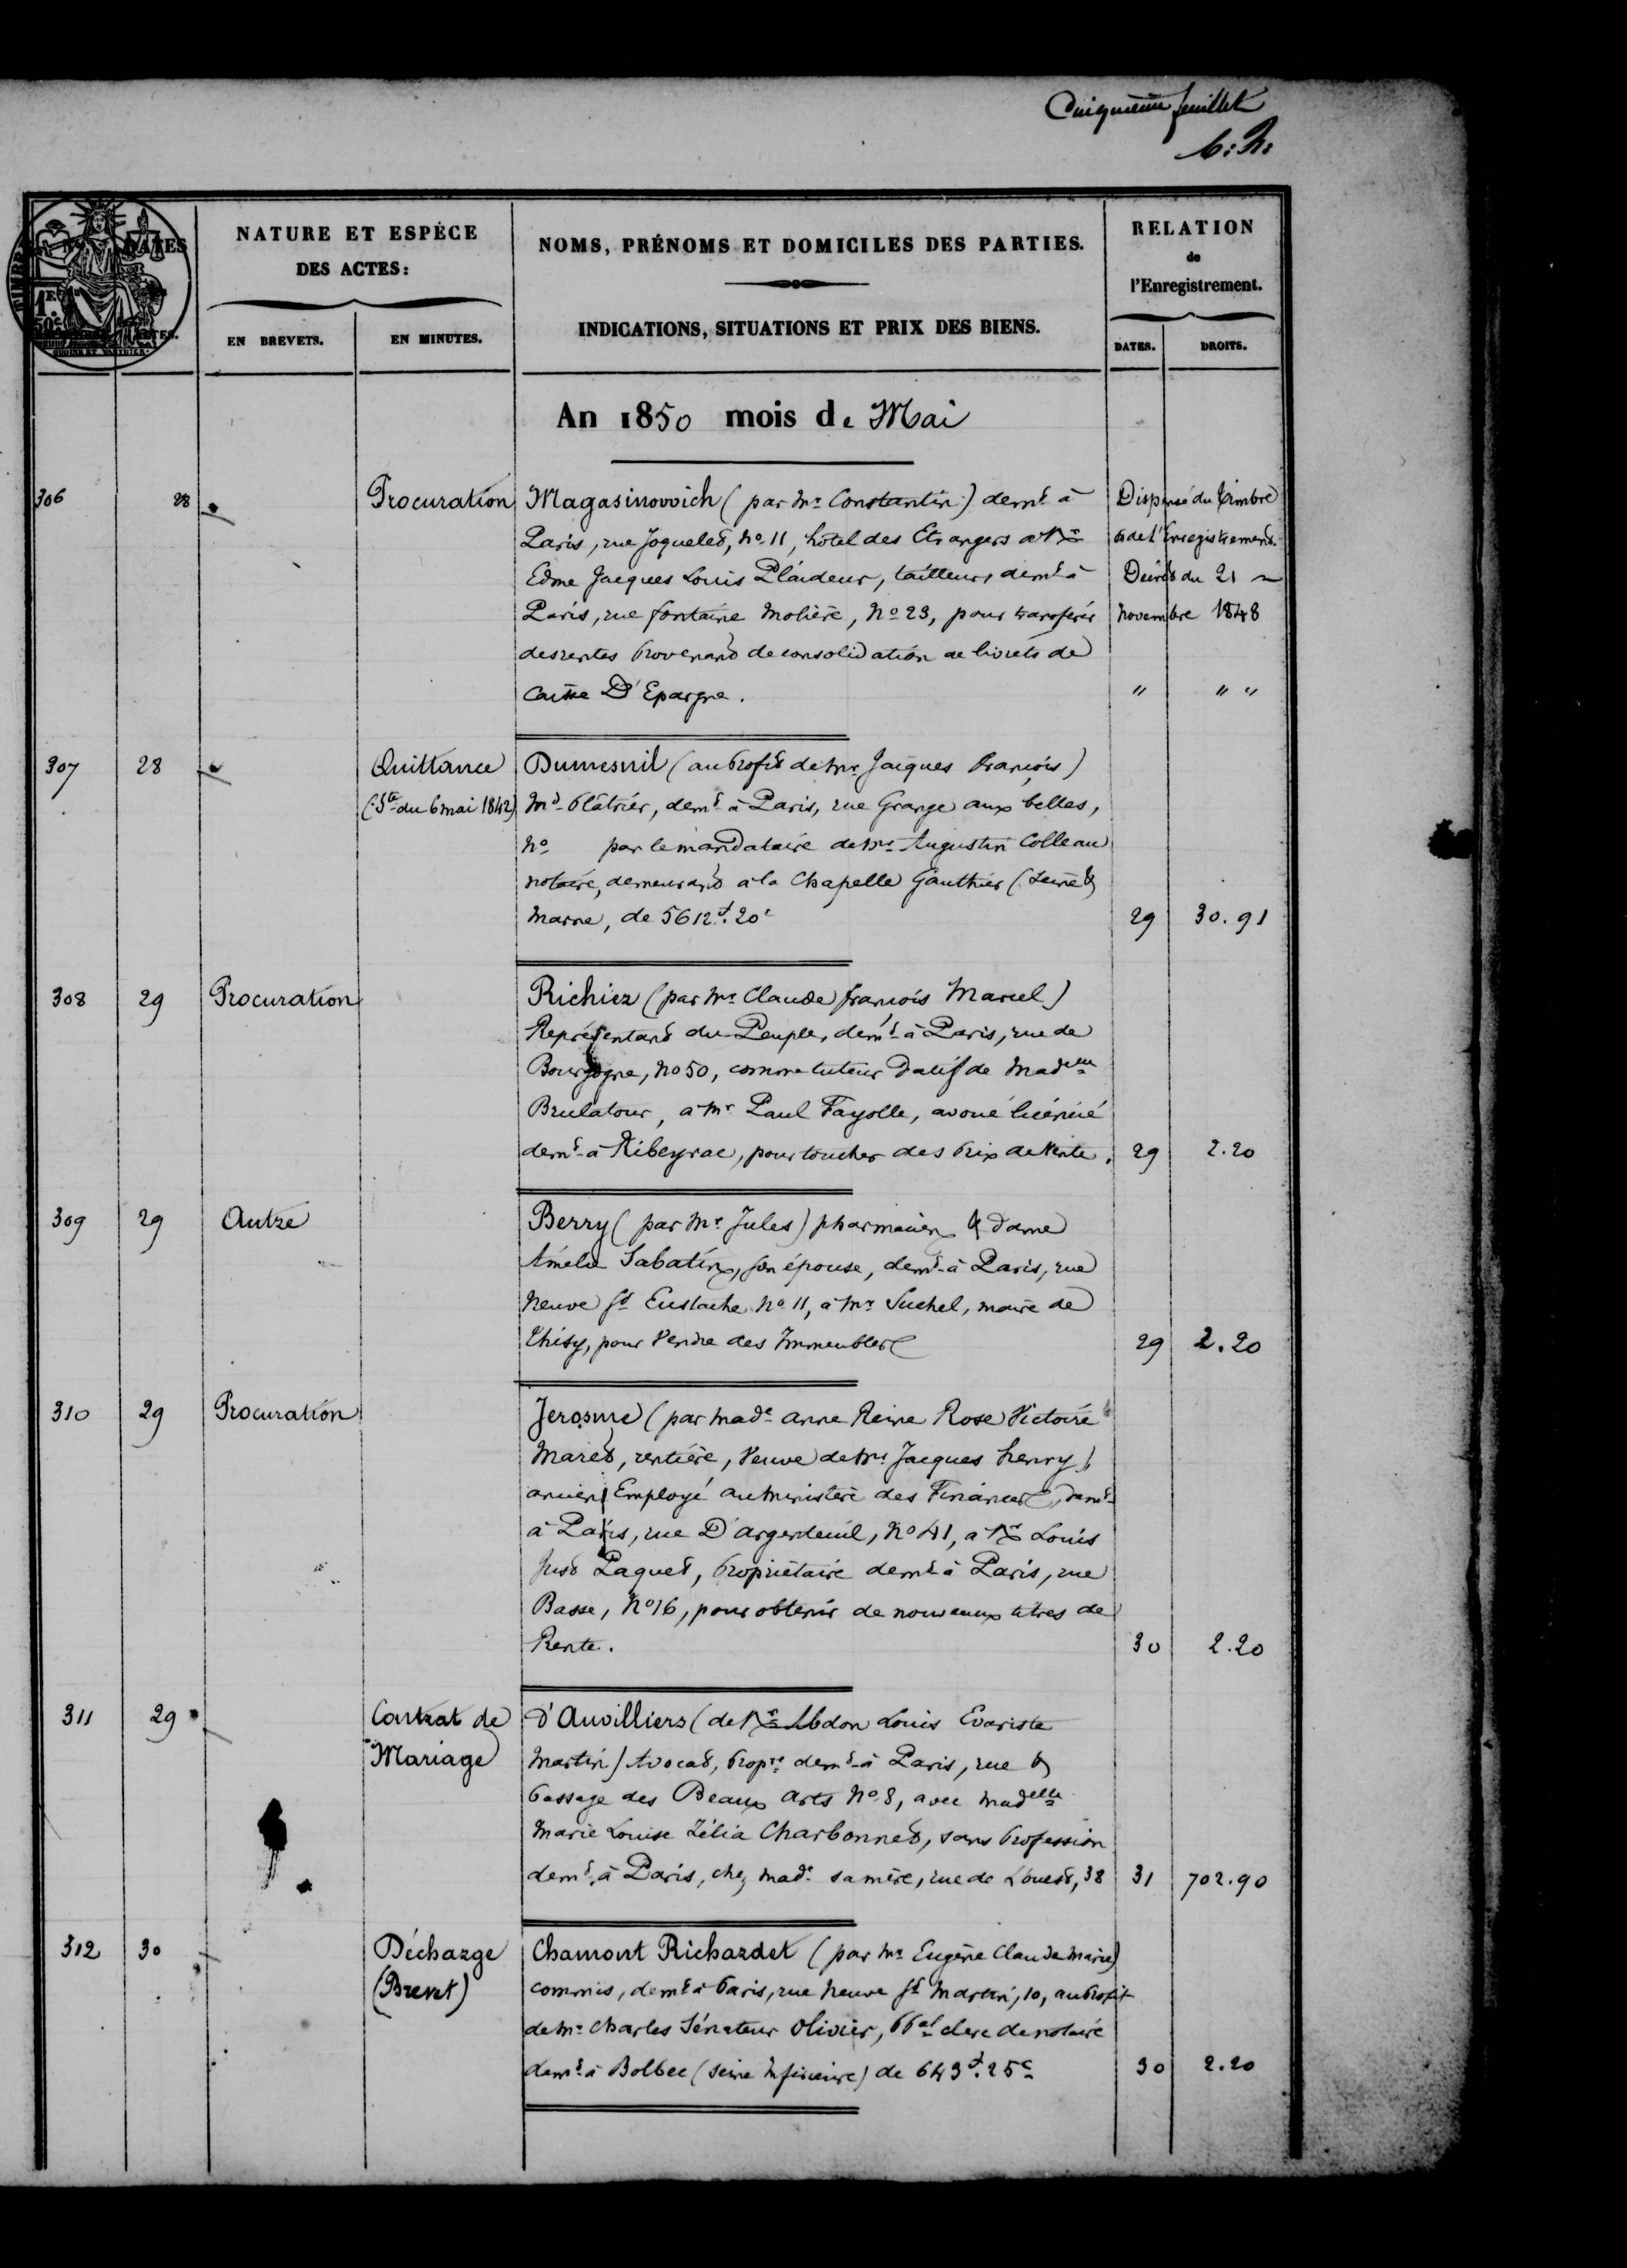 Cinquième feuillet
DATES
NATURE ET ESPÈCE
DES ACTES:
EN BREVETS.
EN MINUTES.
NOMS, PRÉNOMS ET DOMICILES DES PARTIES.
INDICATIONS, SITUATIONS ET PRIX DES BIENS.
RELATION
de
l'Enregistrement.
DATES.
DROITS.
An 1850 mois de Mai
306 28 Procuration Magasinovich (par Mr Constantin) demt à Dispensé du timbre
Paris, rue Joquelet, No 11, hôtel des Etrangers à Mr & de l'Enregistrement.
Edme Jacques Louis Plaideur, tailleur, demt à Décret du 21
Paris, rue fontaine Molière, No 23, pour transférer novembre 1848
des rentes provenant de consolidation de livrets de
Caisse D'Epargne. " " "
307 28 Quittance Dumesnil (au profit de Mr Jacques François)
(Ste du 6 mai 1842) Md plâtrier, demt à Paris, rue Grange aux belles,
No par le mandataire de Mr Augustin Colleau
notaire, demeurant à la Chapelle Gauthier (Seine &
Marne, de 5612f.20c 29 30.91
308 29 Procuration Richiez (par Mr Claude françois Marcel)
Représentant du Peuple, demt à Paris, rue de
Bourgogne, No 50, comme tuteur Datif de Madelle
Brulatour, à Mr Paul Fayolle, avoué licencié
demt à Ribeyrac, pour toucher des prix de Vente. 29 2.20
309 29 Autre Berry (par Mr Jules) pharmacien & dame
Amélie Sabatin, son épouse, demt à Paris, rue
Neuve St Eustache No 11, à Mr Suchel, maire de
Thisy, pour Vendre des Immeubles 29 2.20
310 29 Procuration Jerosme (par made anne Reine Rose Victoire
Maret, rentière, Veuve de Mr Jacques henry)
ancien Employé au ministère des Finances, demt
à Paris, rue D'argenteuil, No 41, à Mr Louis
Just Paquet, propriétaire demt à Paris, rue
Basse, No 16, pour obtenir de nouveaux titres de
Rente. 30 2.20
311 29 Contrat de d'Auvilliers (de Mr Abdon Louis Evariste
Mariage Martin) Avocat, propre demt à Paris, rue &
passage des Beaux arts No 8, avec Madelle
Marie Louise Zélia Charbonnet, sans profession
demt à Paris, chez made sa mère, rue de L'ouest, 38 31 702.90
312 30 Décharge Chamont Richardet (par Mr Eugène Claude Marie)
(Brevet) commis, demt à Paris, rue Neuve St Martin, 10, au profit
de Mr Charles Sénateur Olivier, ppal clerc de notaire
demt à Bolbec (Seine Inférieure) de 643f.25c 30 2.20